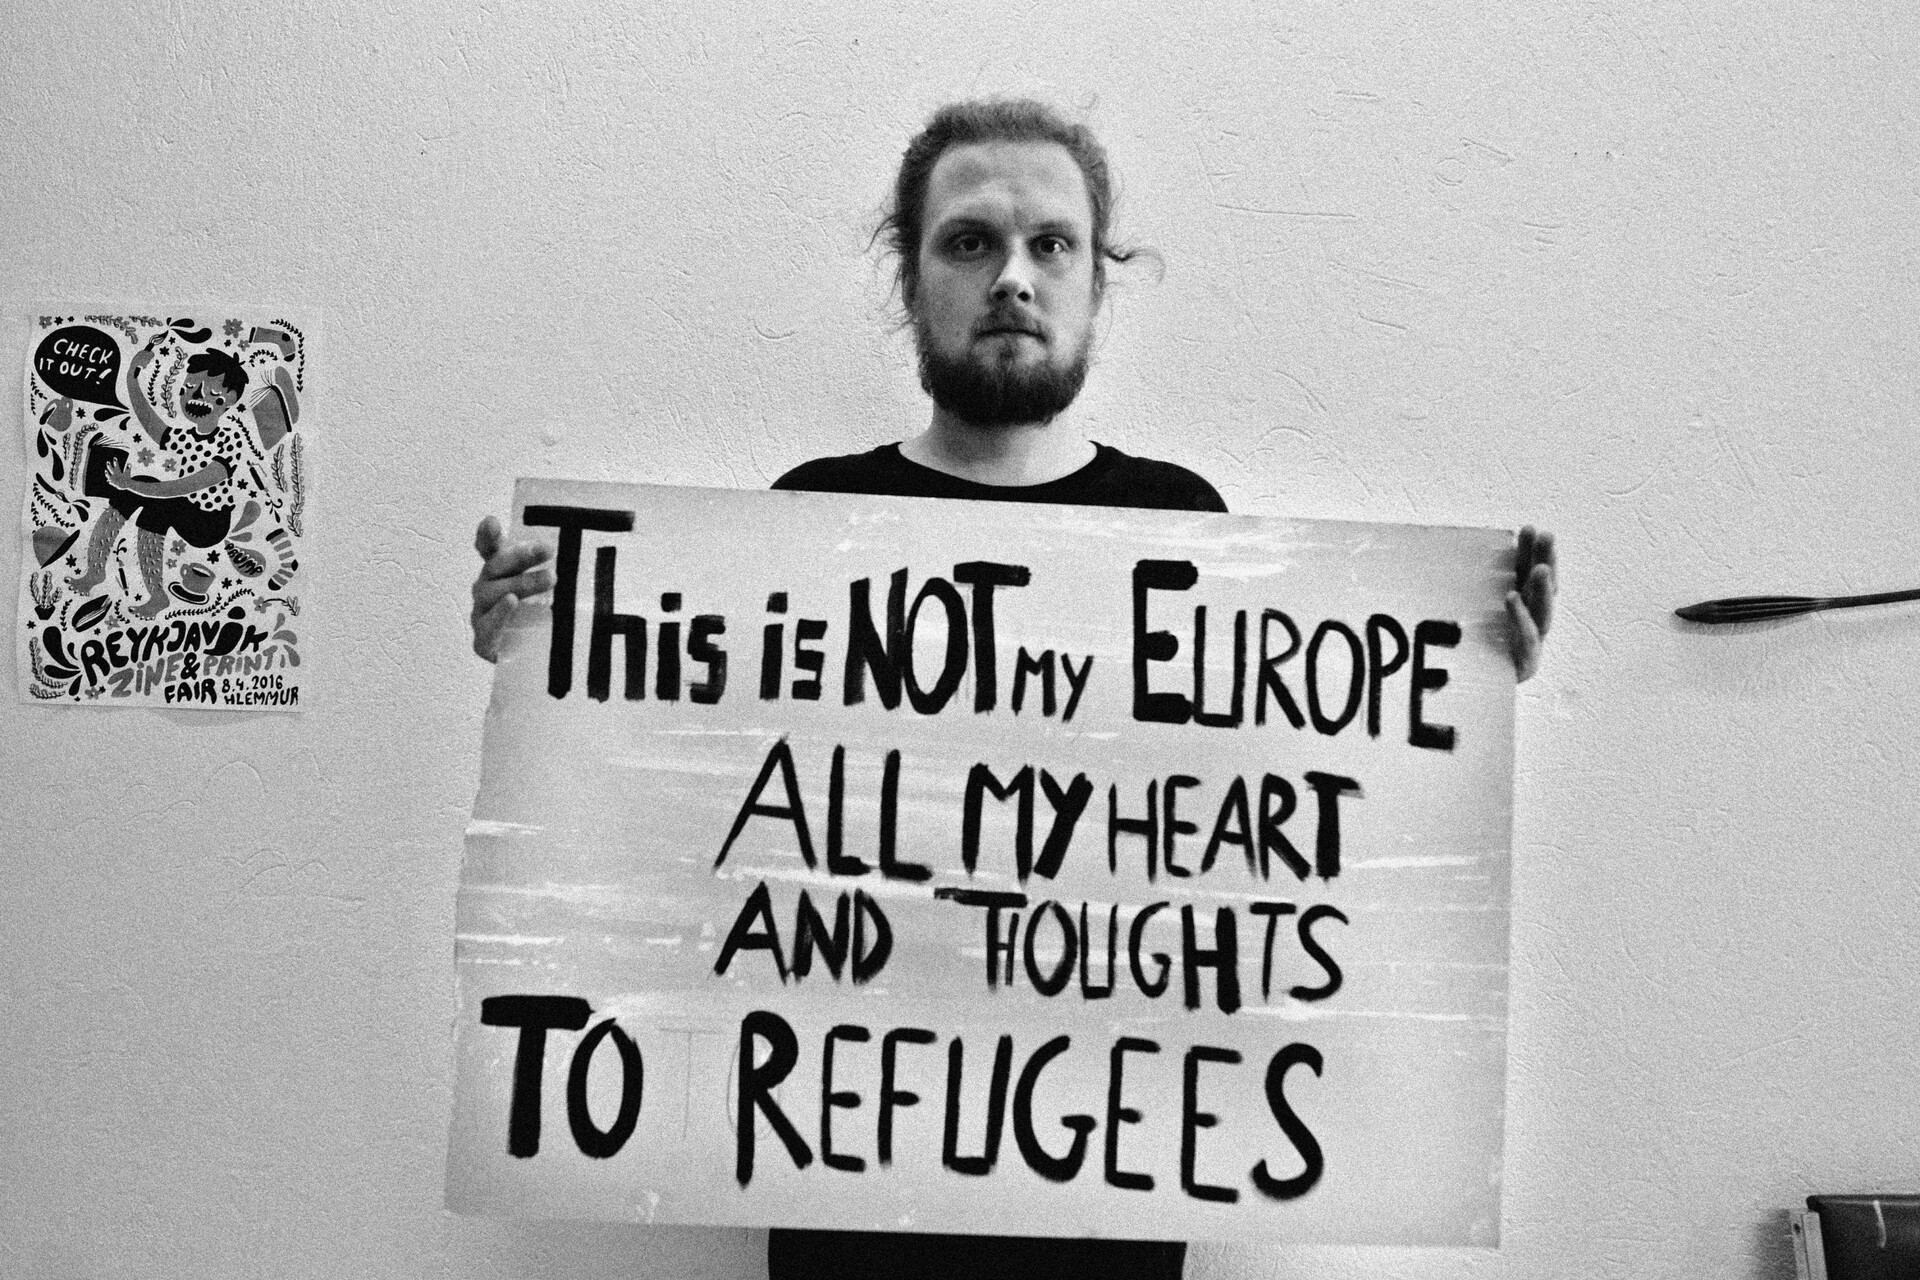 CHECK
IT OUT!
REYKJAVÍK
ZINE & PRINT
FAIR 8.4.2016
HLEMMUR
This is NOT MY EUROPE
ALL MY HEART
AND THOUGHTS
TO REFUGEES